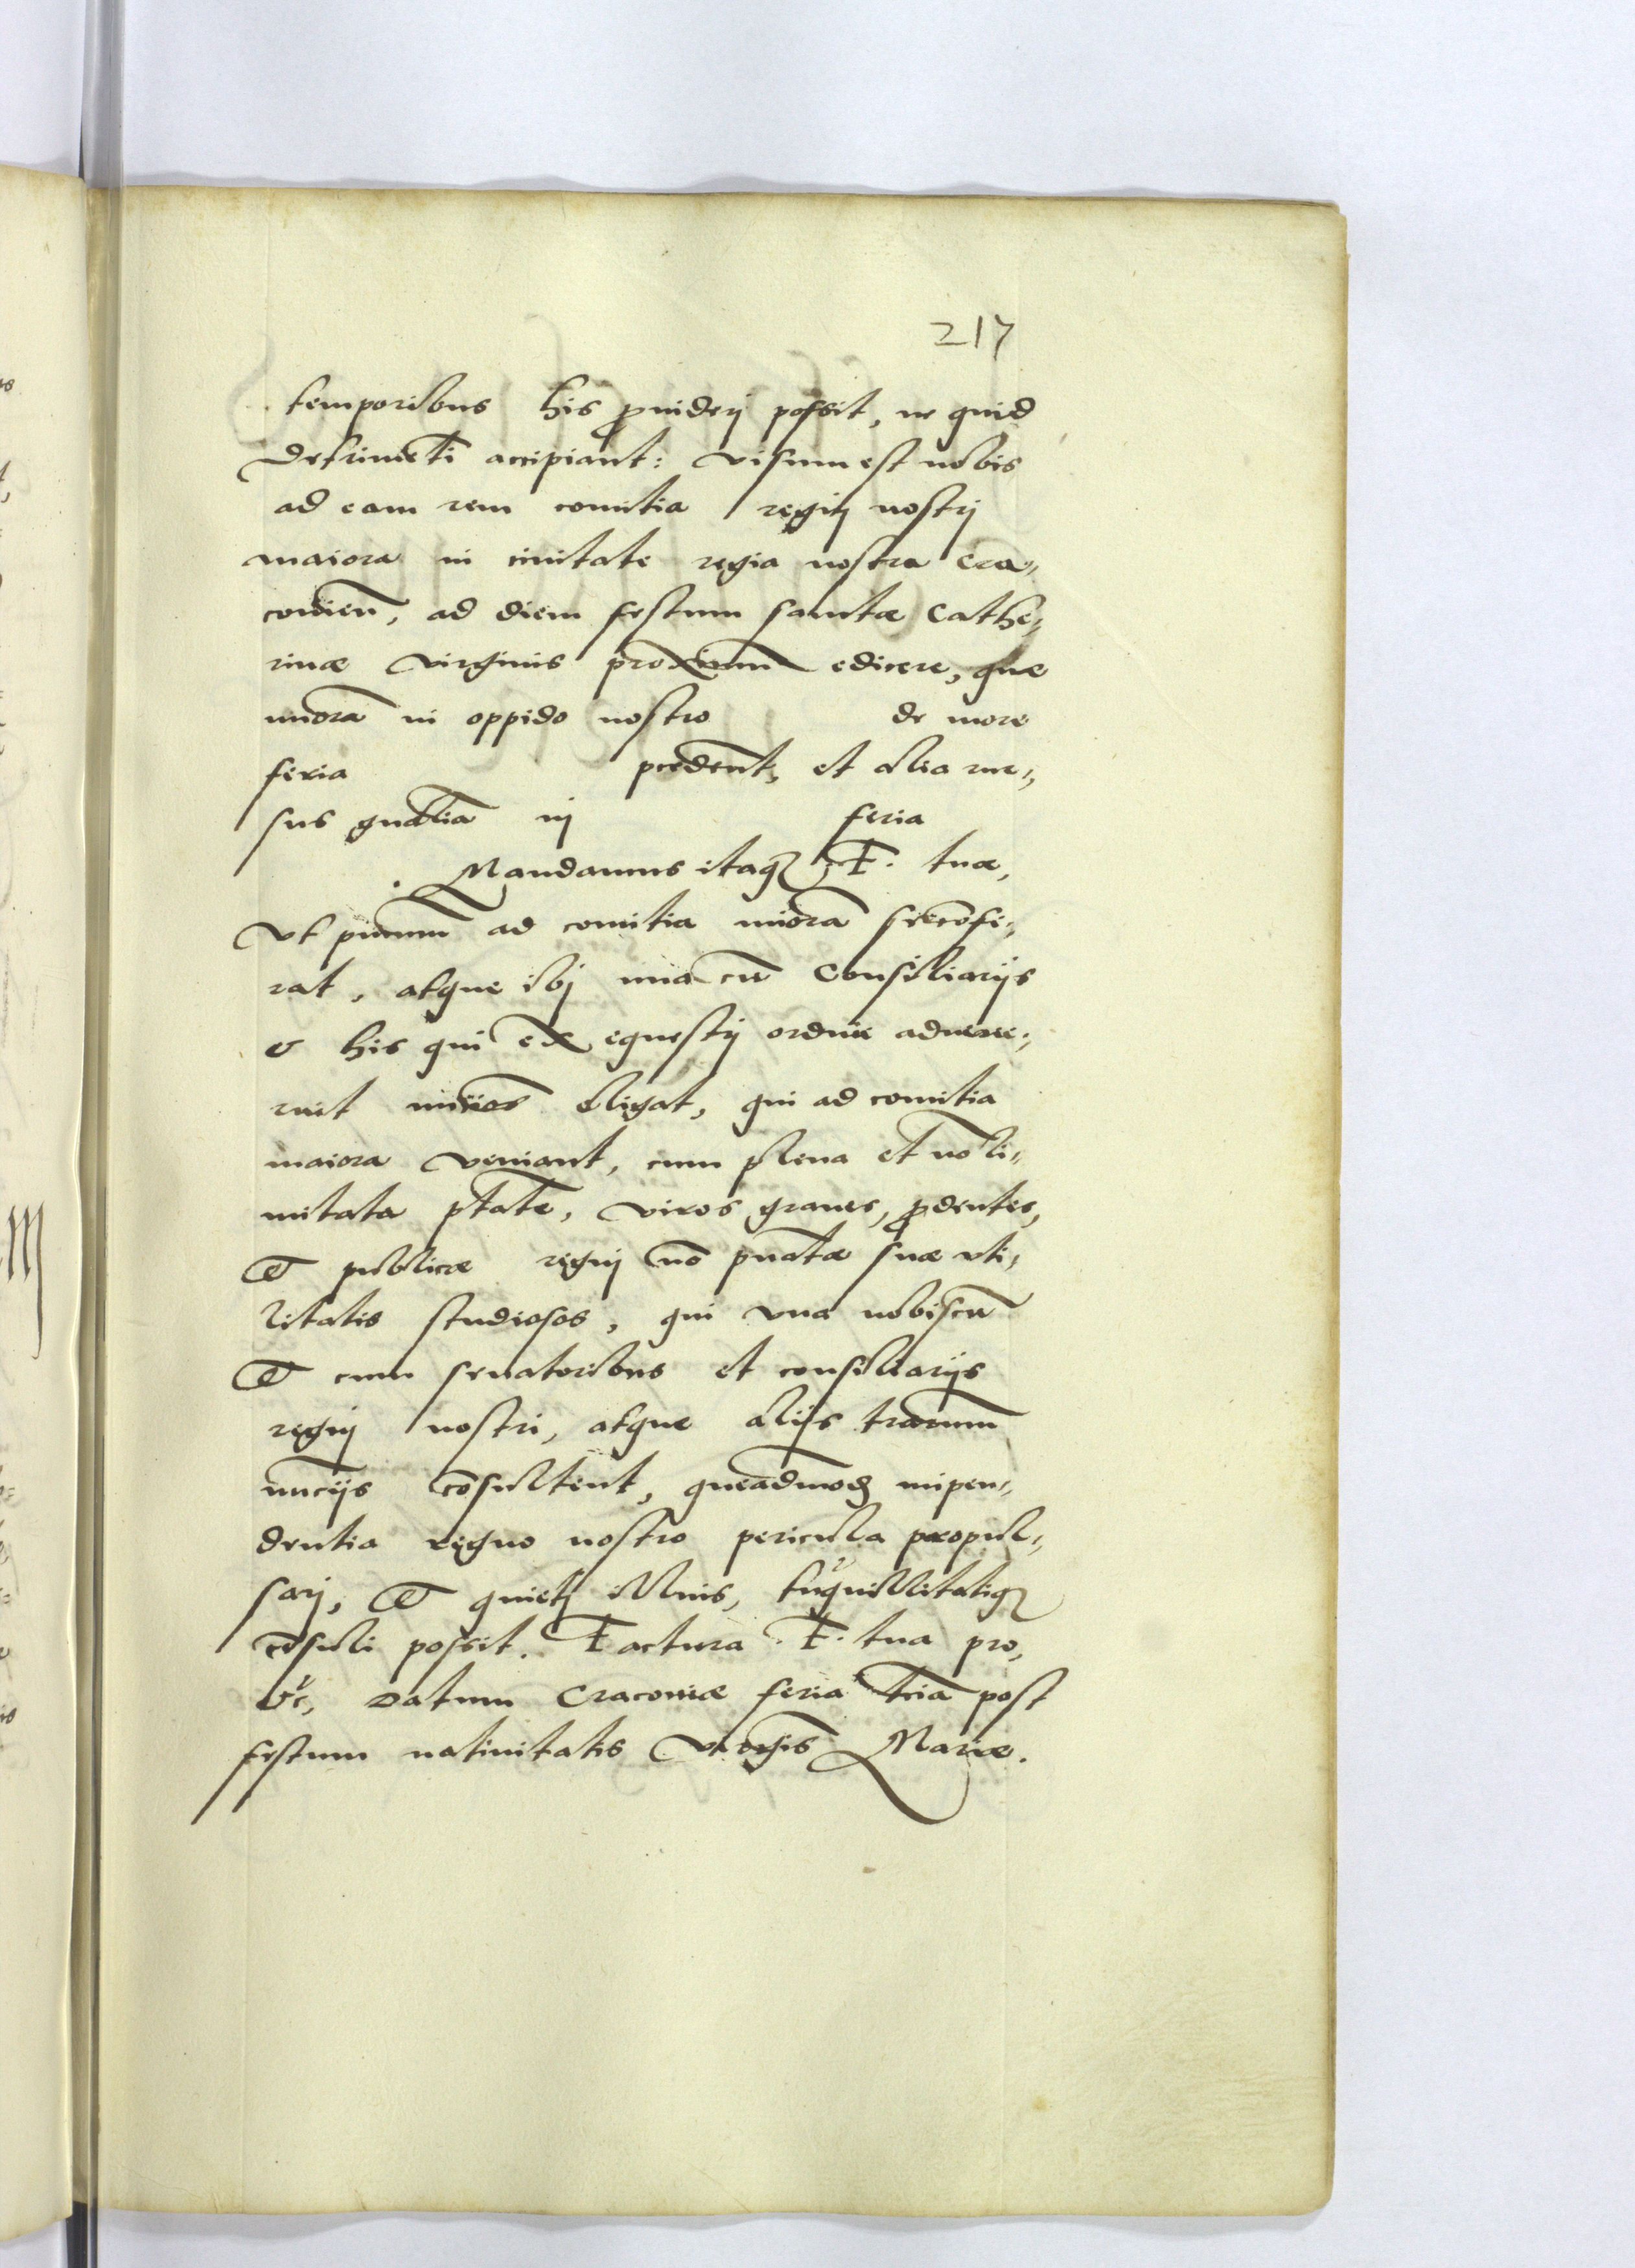 217
temporibus his ꝓuiderj possit, ne quid
detrimēti accipiant: visum est nobis
ad eam rem comitia regnj nostrj
maiora in ciuitate regia nostra Cra„
couien̄, ad diem festum sanctæ Cathe„
rinæ virginis proximum edicere, quæ
minora in oppido nostro de more
feria p̄cedent, et alia
sus gn̄alia in feria
. Mandamus itaqȝ F. tuæ,
vt primum ad comitia minora se cōfe„
rat, atque ibj una cū Consiliarijs
& his qui ex equestrj ordine aduene„
rint nūcios eligat, qui ad comitia
maiora veniant, cum plena et nō li„
mitata ptāte, viros graues, prudentes,
et publicæ regnj nō priuatæ suæ vti„
litatis studiosos, qui vna nobiscū
et cum senatoribus et consiliarijs
regnj nostri, atque alijs trarum
nuncijs cōsultent, queādmodȝ impen„
dentia regno nostro pericula propul„
sarj, et quietj illius, trāquillitatiqȝ
cōsuli possit. Factura F. tua pro
&c, Datum Cracouiæ feria tr̄ia post
festum natiuitatis virgīs Mariæ.